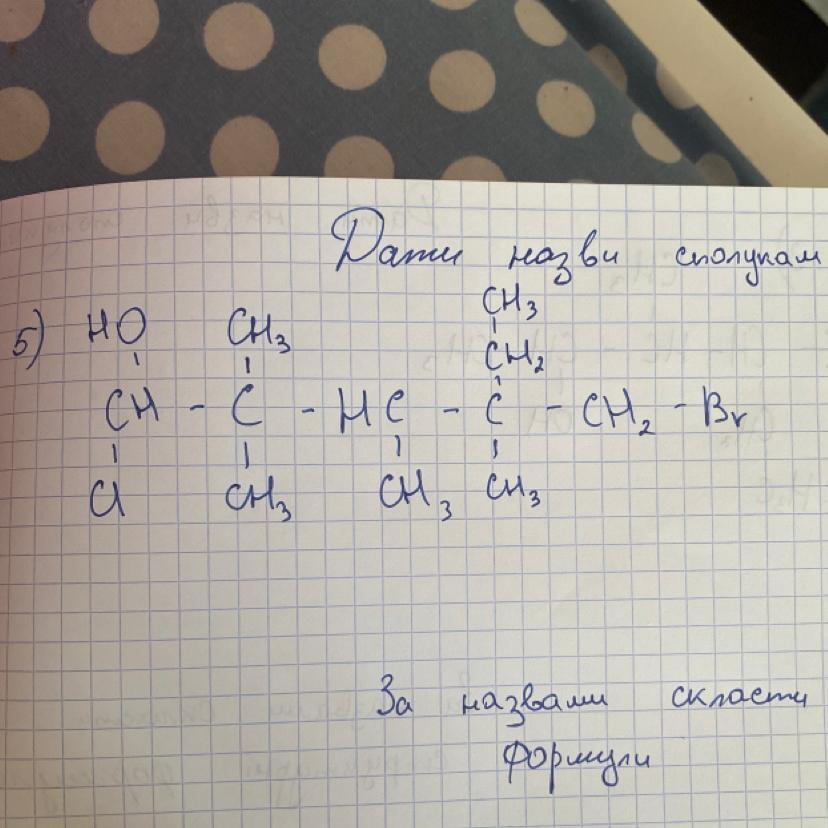 Дати назви сполукам
CH₃
5) HO CH₃ CH₂
CH - C - HC - C - CH₂ - Br
Cl CH₃ CH₃ CH₃
За назвами скласти
формули